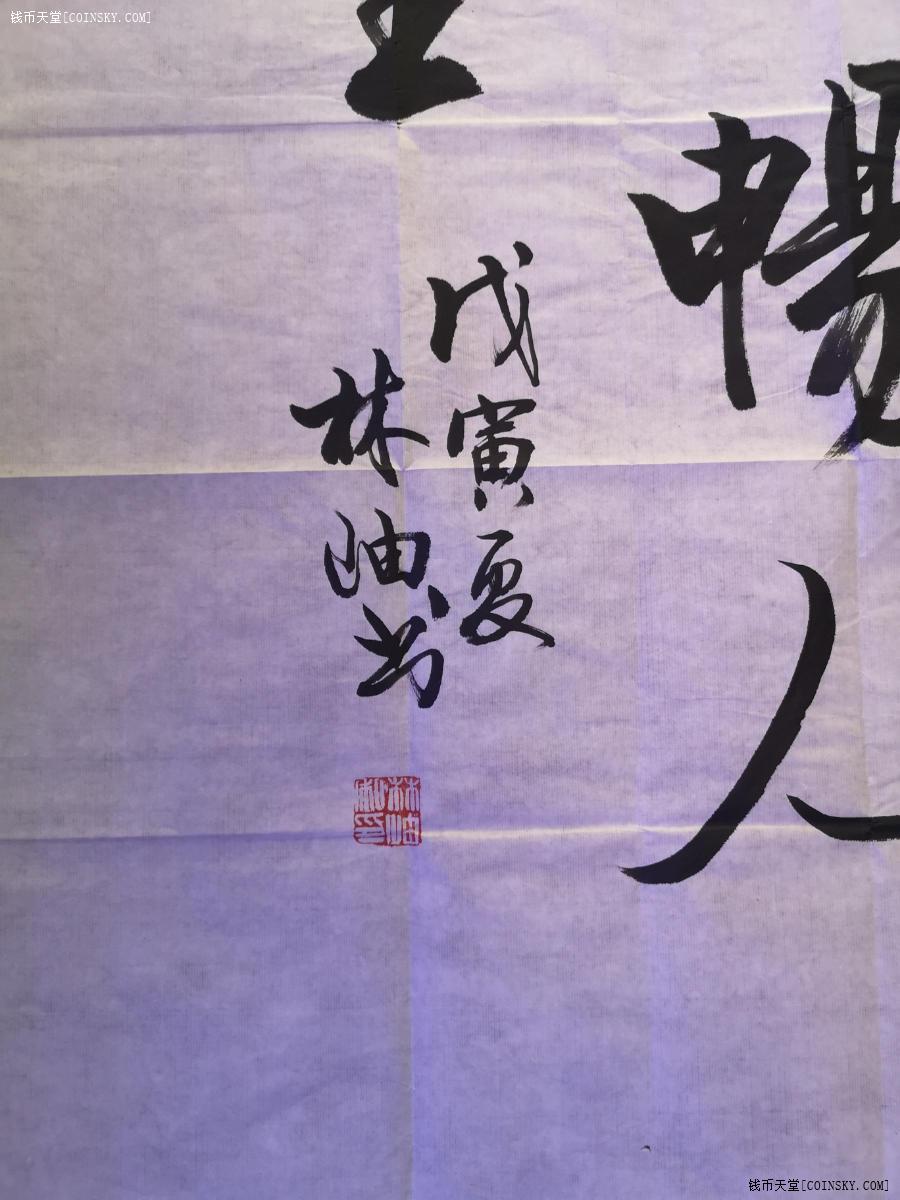 钱币天堂[COINSKY.COM]
暢
人
戊寅夏
林岫书
林岫
钱币天堂[COINSKY.COM]